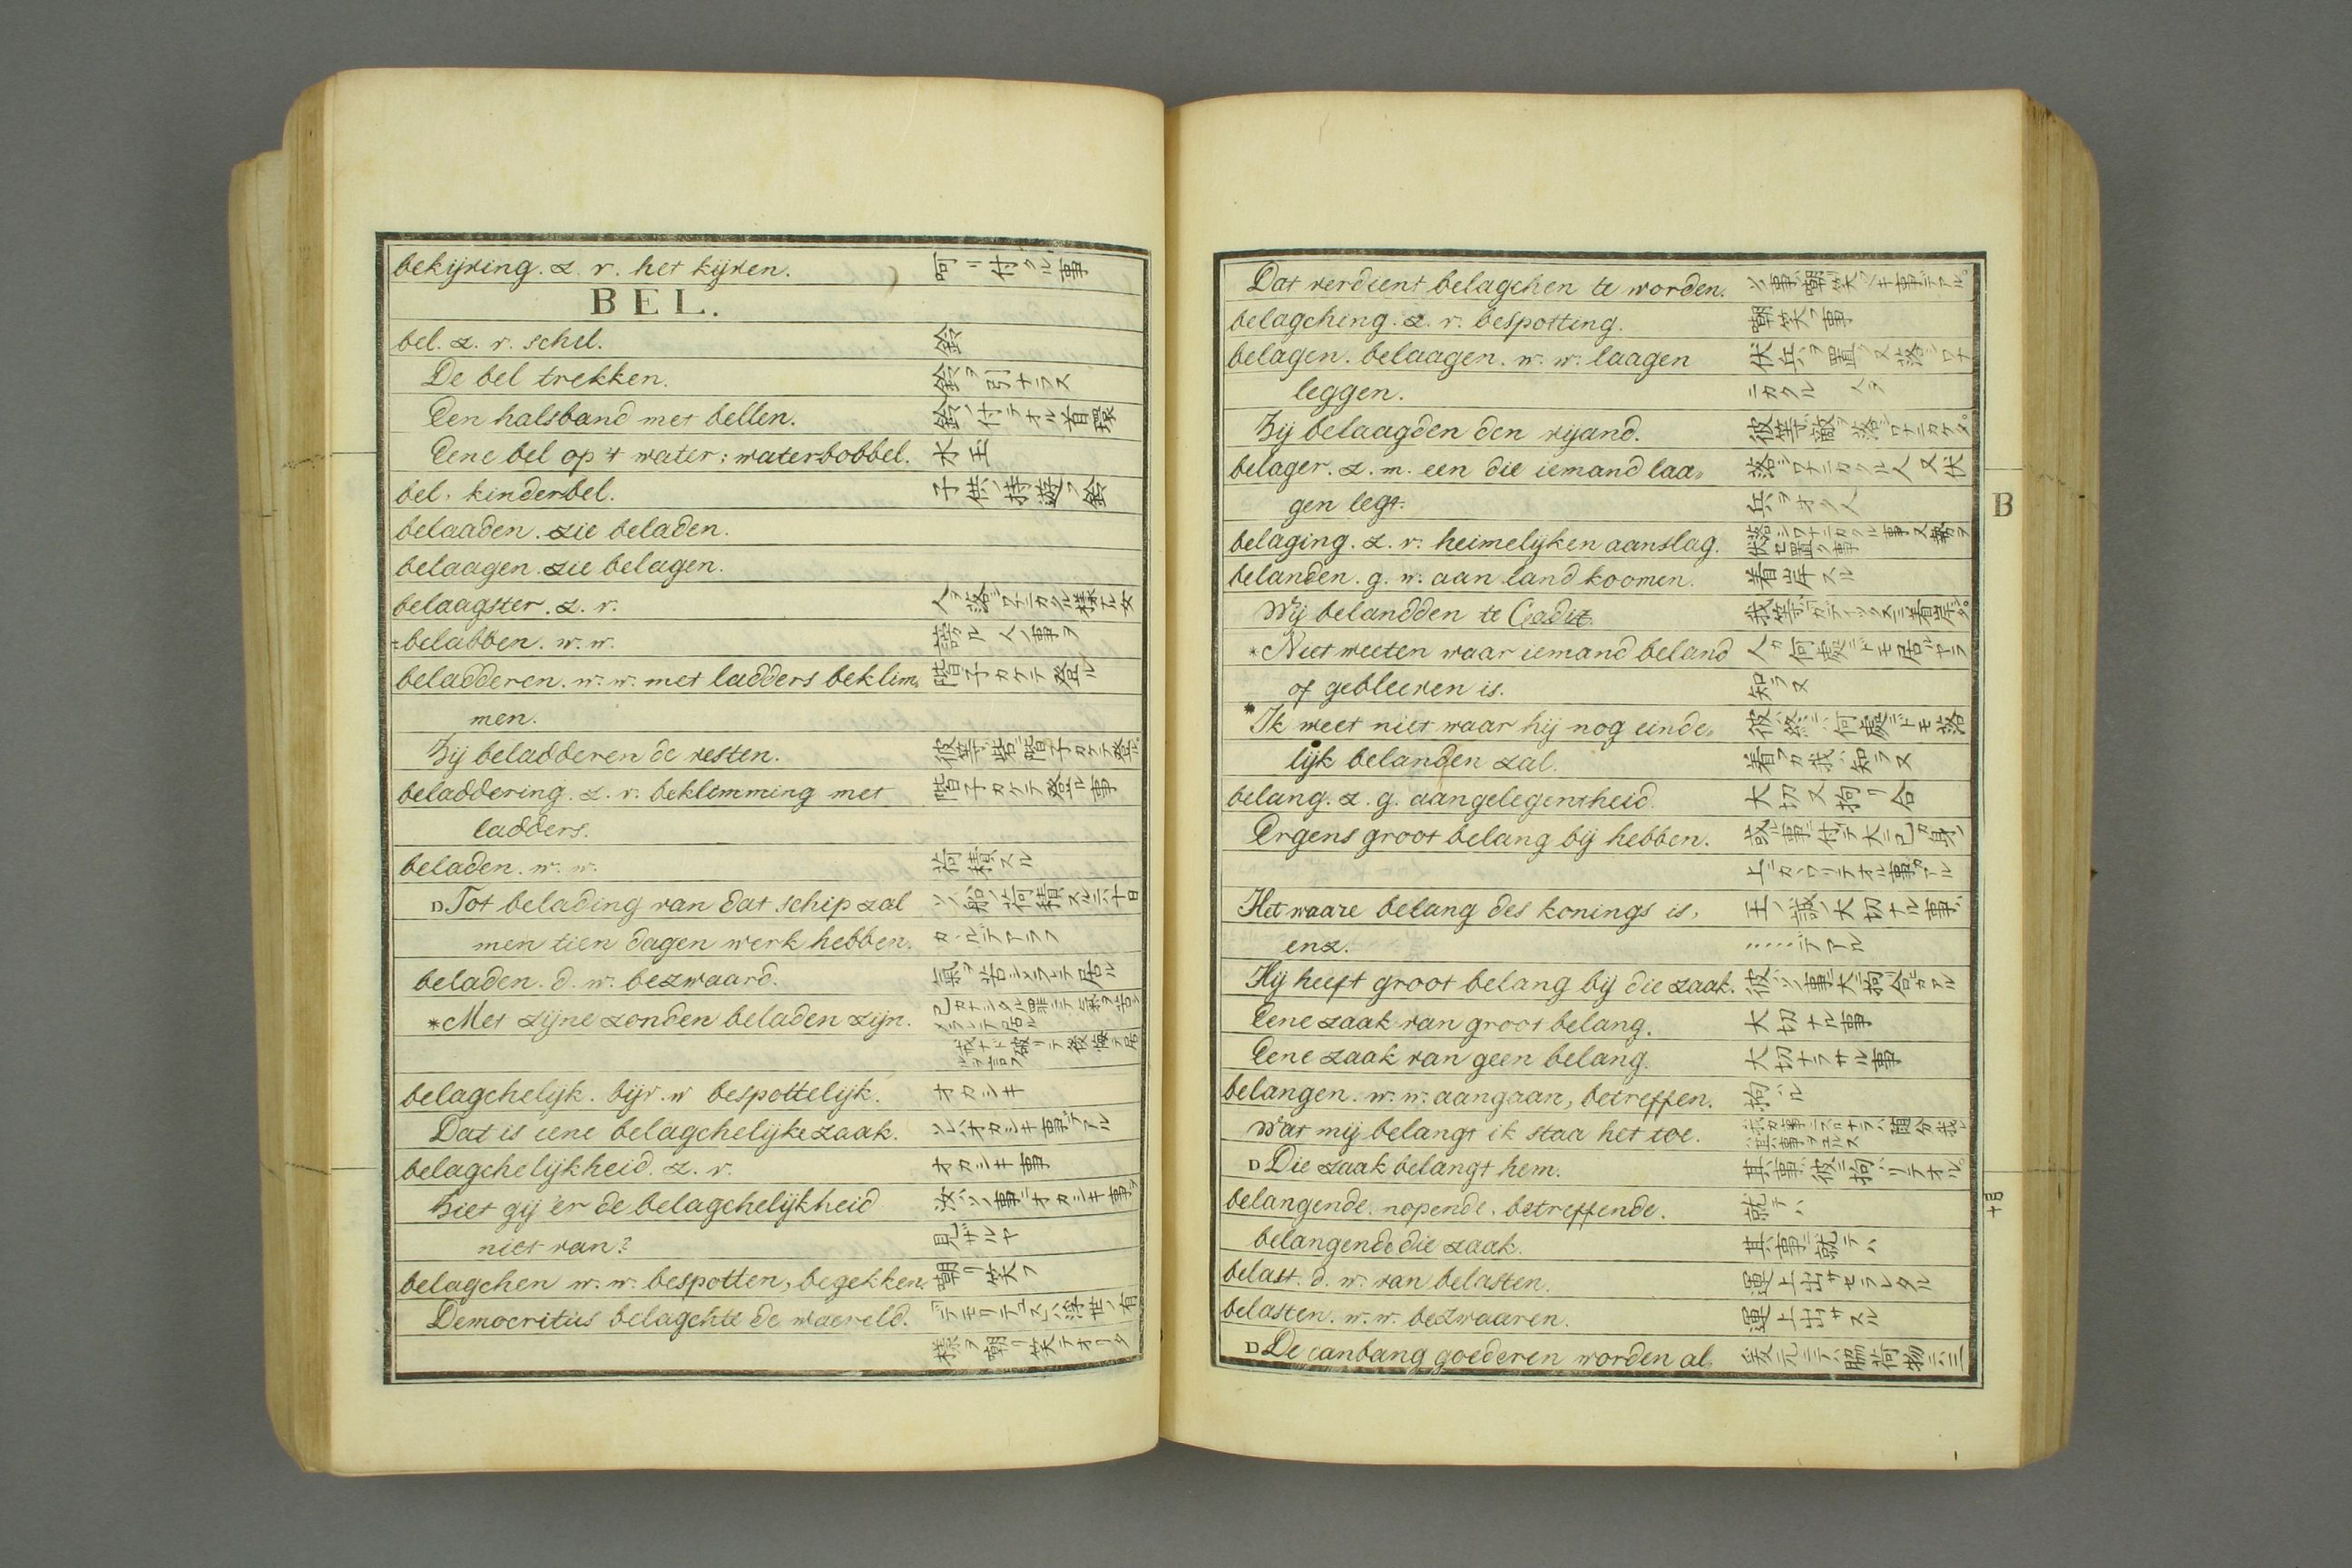 bekijving. z. v. het kijven. 呵リ付クル事
BEL.
bel. z. v. schel. 鈴
De bel trekken. 鈴ヲ引ナラス
Een halsband met bellen. 鈴ノ付テオル首環
Eene bel op 't water; waterbobbel. 水玉
bel, kinderbel. 子供ノ持遊ヲ鈴
belaaden. zie beladen.
belaagen. zie belagen.
belaagster. z. v. 人ヲ落シワナニカクル様ナル女
belabben. w. w. 謗ル人ノ事ヲ
beladderen. w. w. met ladders beklim, 階子カケテ登ル
men.
Zij beladderen de vesten. 彼等ガ砦ニ階子カケテ登ル。
beladdering. z. v. beklimming met 階子カケテ登ル事
ladders.
beladen. w. w. 荷積スル
D. Tot belading van dat schip zal ソノ船ノ荷積スルニハ十日
men tien dagen werk hebben. カヽルデアラフ
beladen. d. w. bezwaard. 氣ヲ苦シメラレテ居ル
*Met zijne zonden beladen zijn. 己カナシタル罪ニテ氣ヲ苦シメラレテ居ル
belagchelijk. bijv. w bespottelijk. オカシキ
Dat is eene belagchelijke zaak. ソレハオカシキ事デアル
belagchelijkheid. z. v. オカシキ事
Ziet gij 'er de belagchelijkheid 汝ハソノ事ニオカシキ事ヲ
niet van? 見ザルヤ
belagchen w. w. bespotten, begekken. 嘲リ笑フ
Democritus belagchte de waereld. デモリテュスハ浮世ノ有
様ヲ嘲リ笑テオリタ
Dat verdient belagchen te worden. ソノ事ハ嘲笑フベキ事デアル。
belagching. z. v. bespotting. 嘲笑フ事
belagen. belaagen. w. w. laagen 伏兵ヲ置ク又落シワナ
leggen. ニカクル 人ヲ
Zij belaagden den vijand. 彼等ガ敵ヲ落シワナニカケタ。
belager. z. m. een die iemand laa, 落シワナニカクル人又伏
gen legt. 兵ヲオク人
belaging. z. v. heimelijken aanslag. 落シワナニカクル事又勢ヲ伏セ置ク事
belanden. g. w. aan land koomen. 着岸スル
Wij belandden te Cadix. 我等ガカディックスニ着岸シタ。
*Niet weeten waar iemand beland 人カ何處ニドモ居ルヤラ
of gebleeven is. 知ラヌ
*Ik weet niet waar hij nog einde, 彼ハ終ニハ何處ニドモ落
lijk belanden zal. 着フカ我ハ知ラヌ
belang. z. g. aangelegentheid. 大切又拘リ合
Ergens groot belang bij hebben. 或ル事ニ付テ大ニ己カ身ノ
上ニカヽワリテオル事ガアル
Het waare belang des konings is, 王ノ誠ノ大切ナル事ハ
enz. ……デアル
Hij heeft groot belang bij die zaak. 彼ハソノ事ニ大ニ拘合ガアル
Eene zaak van groot belang. 大切ナル事
Eene zaak van geen belang. 大切ナラサル事
belangen. w. w. aangaan, betreffen. 拘ハル
Wat mij belangt ik staa het toe.
D Die zaak belangt hem. 其事ハ彼ニ拘ハリテオル。
belangende. nopende. betreffende. 就テハ
belangende die zaak. 其事ニ就テハ
belast. d. w. van belasten. 運上出サセラレタル
belasten. w. w. bezwaaren. 運上出サスル
D De canbang goederen worden al. 爰元ニテハ脇荷物ニハ三
B